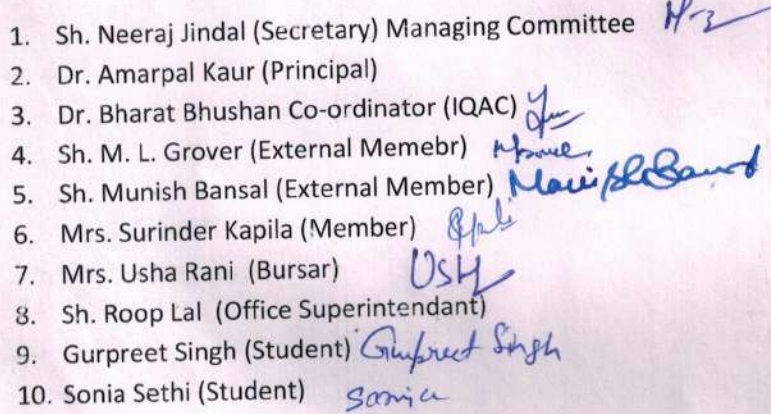 1. Sh. Neeraj Jindal (Secretary) Managing Committee
2. Dr. Amarpal Kaur (Principal)
3. Dr. Bharat Bhushan Co-ordinator (IQAC)
4. Sh. M. L. Grover (External Memebr)
5. Sh. Munish Bansal (External Member)
6. Mrs. Surinder Kapila (Member)
7. Mrs. Usha Rani (Bursar) USH
8. Sh. Roop Lal (Office Superintendant)
9. Gurpreet Singh (Student) Gurpreet Singh
10. Sonia Sethi (Student) Sonia